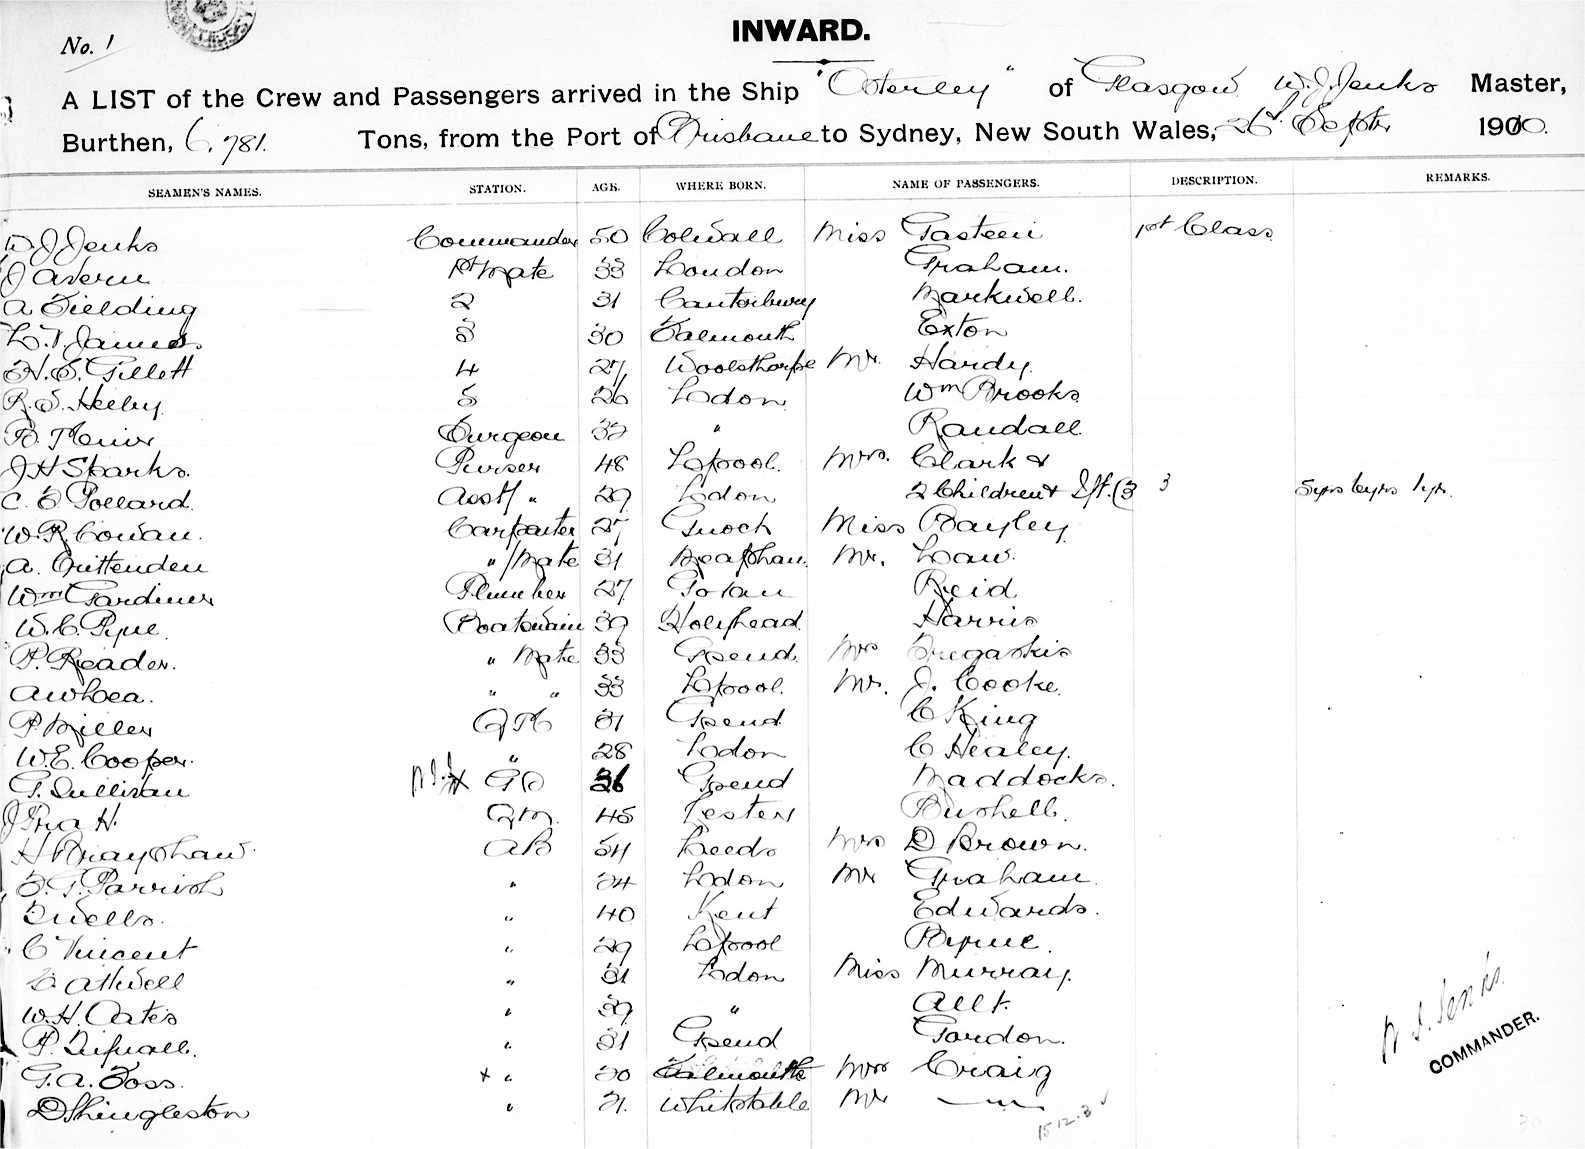 No. 1
INWARD.
A LIST of the Crew and Passengers arrived in the Ship "Osterley" of Glasgow W. J. Jenks Master,
Burthen, 6,781. Tons, from the Port of Brisbane to Sydney, New South Wales, 26 Septbr 1910.
SEAMEN'S NAMES. STATION. AGE. WHERE BORN. NAME OF PASSENGERS. DESCRIPTION. REMARKS.
W J Jenks Commander 50 Colwall Miss Gasteen 1st Class
J Avern 1st Mate 33 London Graham.
A Fielding 2 31 Canterbury Markwell.
L. T. James 3 30 Falmouth Exton
H. E. Gillett 4 27 Woolsthorpe Mr. Hardy
R. S. Heeley 5 26 Ldon Wm Brooks
Surgeon 32 " Randall
J H Sparks. Purser 48 Lpool. Mrs. Clark &
C. E Pollard. Asst/ " 29 Ldon 2 Children & Ift. (3 3
W. R. Cowan. Carpenter 27 Gnock Miss Bayley
A. Crittenden " / Mate 31 Meapham. Mr. Law.
Wm Gardiner Plumber 27 Govan Reid
W. C. Pyne. Boatswain 39 Holyhead Harris
P. Reader. " Mate 33 Gsend. Mrs Tregaskis
A W Lea. " " 33 Lpool. Mr. J. Cooke.
P Miller QM 31 Gsend. C King
W. E. Cooper. " 28 Ldon C Healey.
G. Sullivan 36 Gsend Maddocks.
J Pria H. QM. 45 Lester Bushell.
H Brayshaw. AB 54 Leeds Mrs D Brown.
F. G. Parrish " 24 Ldon Mr Graham.
F Wells. " 40 Kent Edwards.
C Vincent " 29 Lpool Byrne.
Attwell " 31 Ldon Miss Murray.
W. H. Oates " 39 " Allt.
P. Tifnall. " 31 Gsend Gordon.
G. A. Foss. + " 20 Falmouth Mrs Craig
D Shingleston " 21. Whitstable Mr —
15.12.3
W. J. Jenks.
COMMANDER.